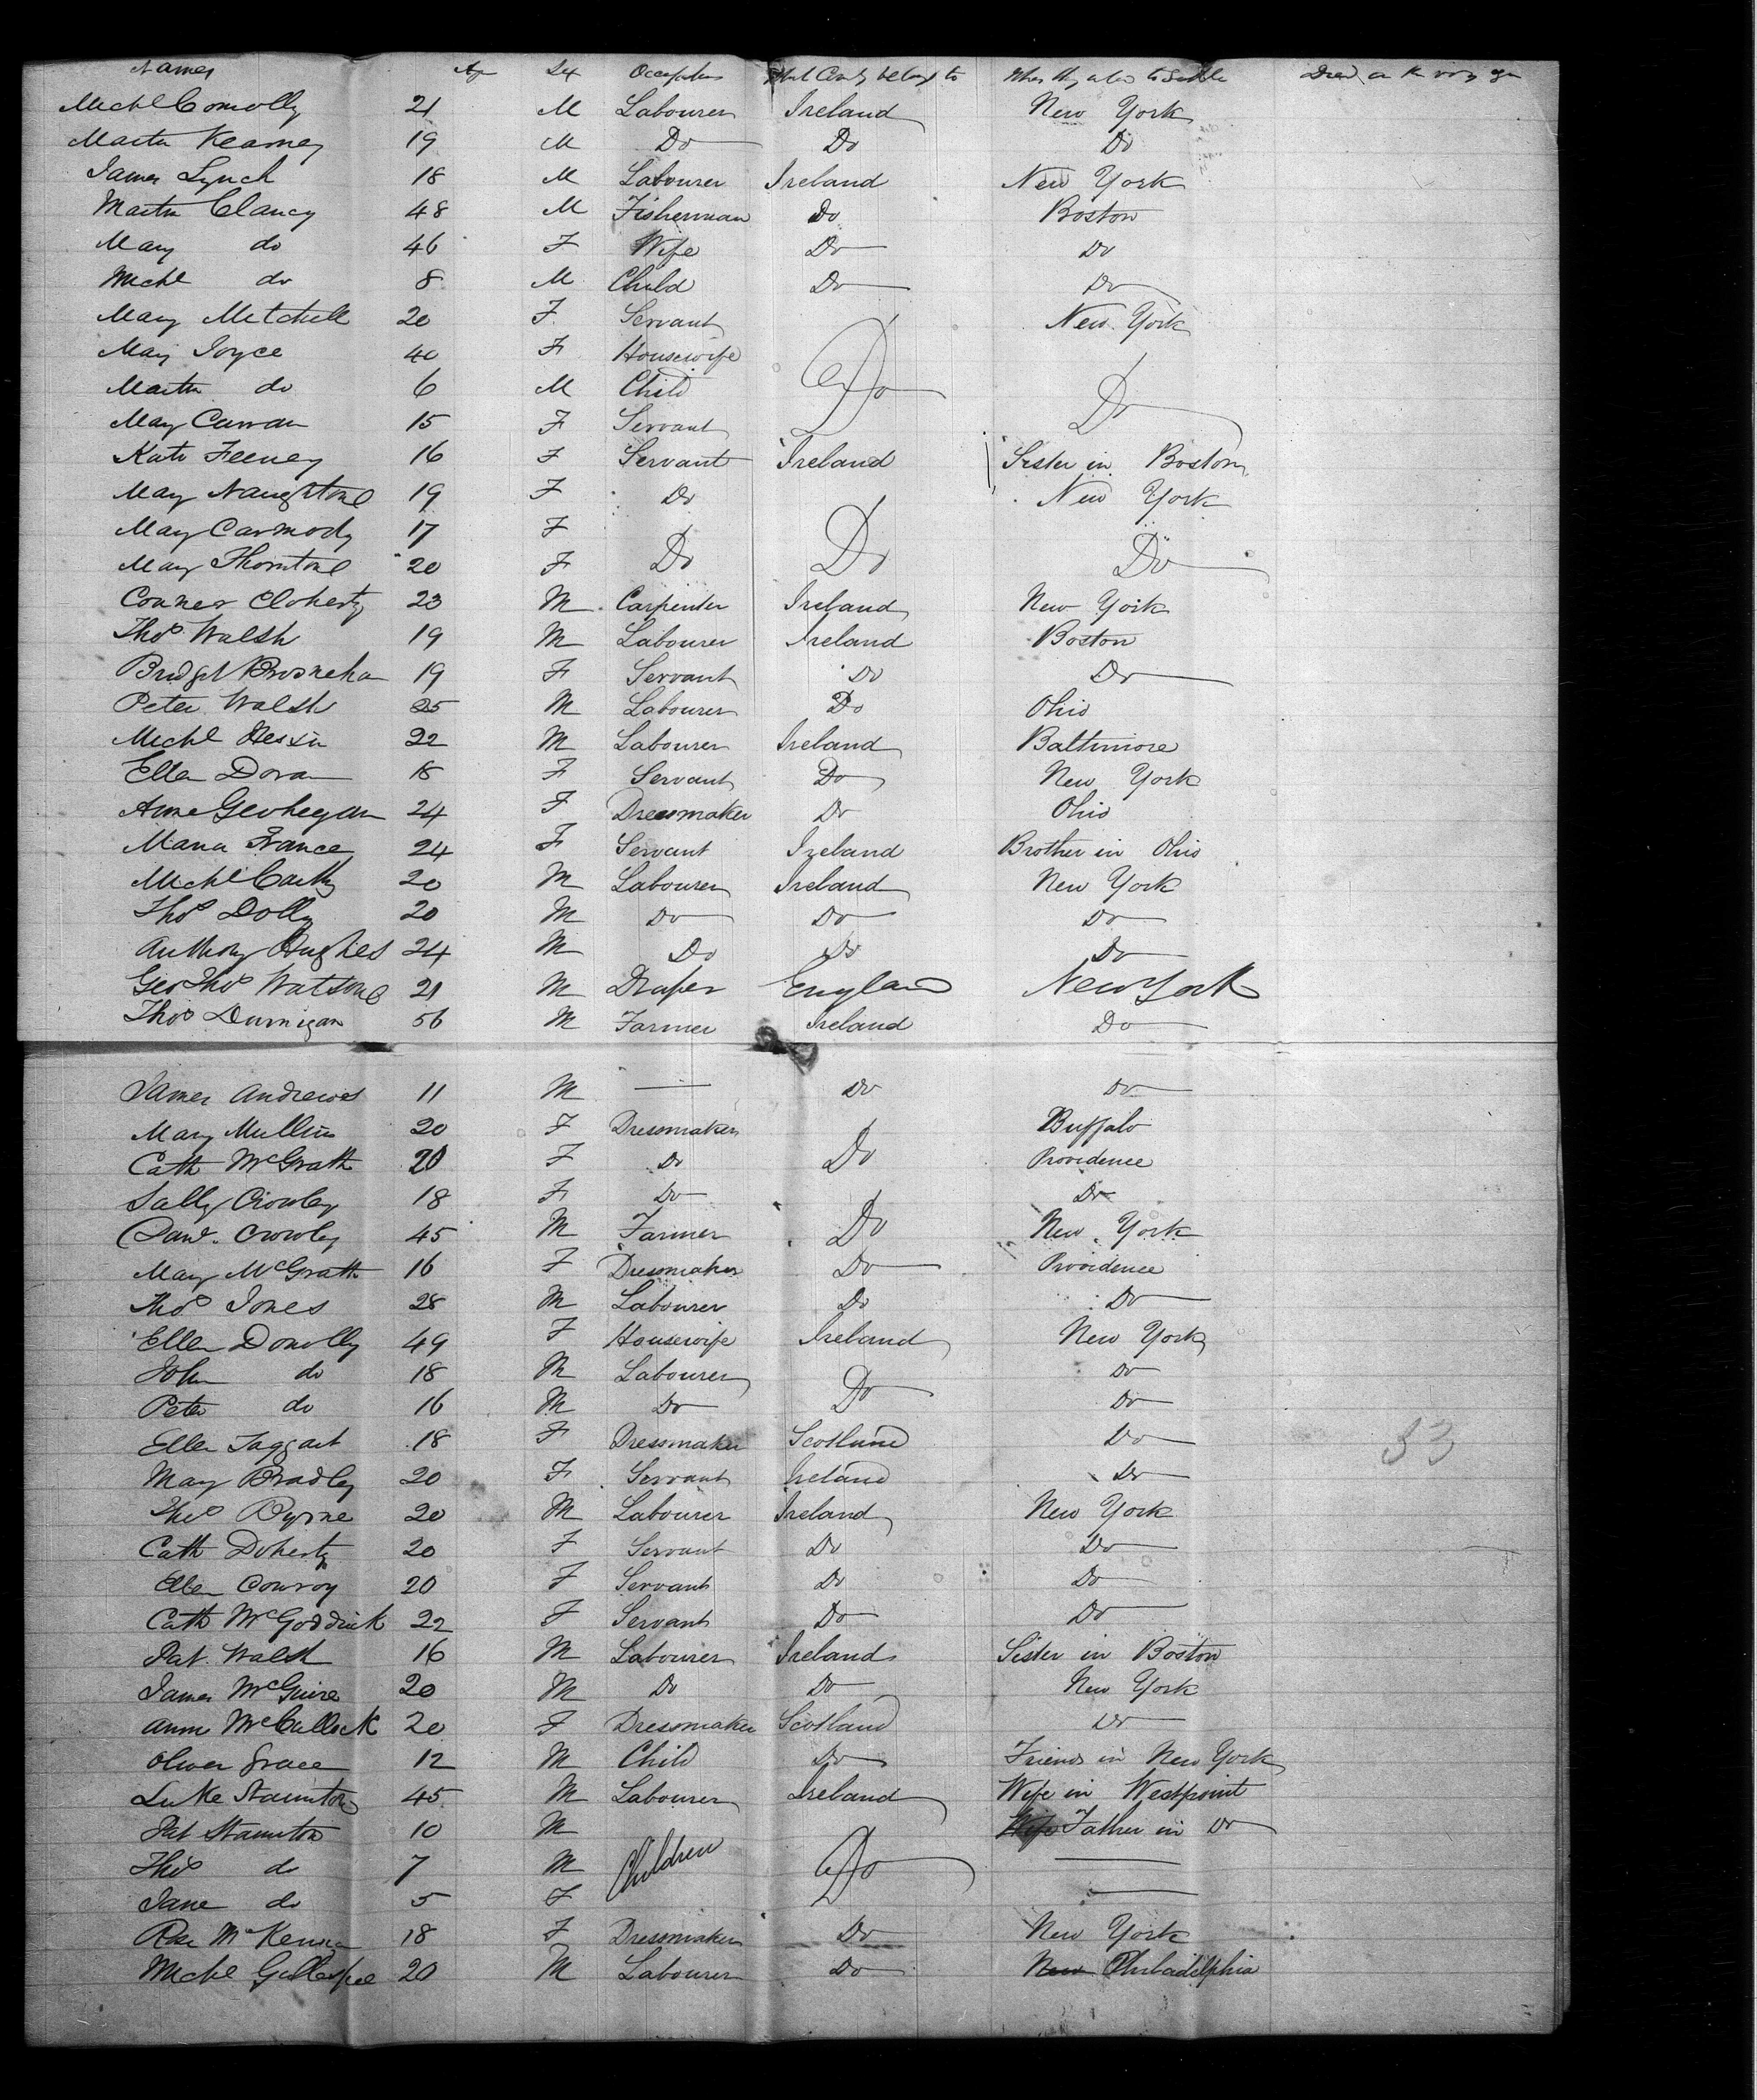 Names Age Sex Occupation What County belong to Where they intend to Settle Died on the voyage
Michl Conolly 21 M Labourer Ireland New York
Martin Kearney 19 M Do Do Do
James Lynch 18 M Labourer Ireland New York
Martin Clancy 48 M Fisherman Do Boston
Mary do 46 F Wife Do Do
Michl do 8 M Child Do Do
Mary Mitchell 20 F Servant New York
Mary Joyce 40 F Housewife Do
Martin do 6 M Child Do
Mary Curran 15 F Servant
Kate Feeney 16 F Servant Ireland Sister in Boston
Mary Naughtone 19 F Do New York
Mary Carmody 17 F
Mary Thorntone 20 F Do Do Do
Conner Cloherty 23 M Carpenter Ireland New York
Thos Walsh 19 M Labourer Ireland Boston
Bridget Brosneha 19 F Servant Do Do
Peter Walsh 25 M Labourer Do Ohio
Michl 22 M Labourer Ireland Baltimore
Ellen Doran 18 F Servant Do New York
Anne Geohegan 24 F Dressmaker Do Ohio
Maria France 24 F Servant Ireland Brother in Ohio
Michl Carthy 20 M Labourer Ireland New York
Thos Dolly 20 M Do Do Do
Anthony Hughes 24 M Do Do Do
Geo Thos Watsone 21 M Draper England New York
Thos Durnigan 56 M Farmer Ireland Do
James Andrews 11 M — Do Do
Mary Mullins 20 F Dressmaker Buffalo
Cath McGrath 20 F Do Do Providence
Sally Crowley 18 F Do Do
Danl. Crowley 45 M Farmer Do New York
Mary McGrath 16 F Dressmaker Do Providence
Thos Jones 28 M Labourer Do Do
Ellen Donolly 49 F Housewife Ireland New York
John do 18 M Labourer Do
Peter do 16 M Do Do Do
Ellen Taggart 18 F Dressmaker Scotland Do 53
Mary Bradley 20 F Servant Ireland Do
Thos Byrne 20 M Labourer Ireland New York
Cath Doherty 20 F Servant Do Do
Ellen Conroy 20 F Servant Do Do
Cath McGoddrick 22 F Servant Do Do
Pat. Walsh 16 M Labourer Ireland Sister in Boston
James McGuire 20 M Do Do New York
Anne McCullock 20 F Dressmaker Scotland Do
Oliver Grace 12 M Child Do Friends in New York
Luke Staunton 45 M Labourer Ireland Wife in Westpoint
Pat Staunton 10 M Wife Father in Do
Thos do 7 M Children Do —
Jane do 5 F —
Rose McKenna 18 F Dressmaker Do New York
Michl Gillespee 20 M Labourer Do New Philadelphia